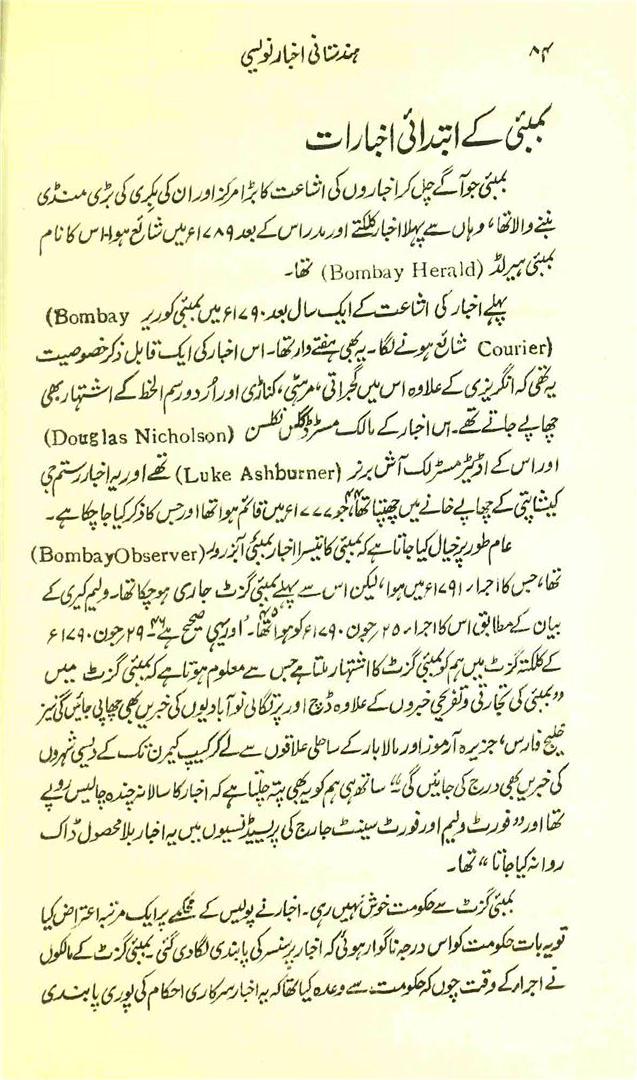 ۸۴ ہندستانی اخبار نویسی
بمبئی کے ابتدائی اخبارات
بمبئی جو آگے چل کر اخباروں کی اشاعت کا بڑا مرکز اور ان کی بِکری کی بڑی منڈی
بننے والا تھا، وہاں سے پہلا اخبار کلکتے اور مدراس کے بعد ۱۷۸۹ء میں شائع ہوا۔ اس کا نام
بمبئی ہیرلڈ (Bombay Herald) تھا۔
پہلے اخبار کی اشاعت کے ایک سال بعد ۱۷۹۰ء میں بمبئی کوریر (Bombay
Courier) شائع ہونے لگا۔ یہ بھی ہفتے وار تھا۔ اس اخبار کی ایک قابل ذکر خصوصیت
یہ تھی کہ انگریزی کے علاوہ اس میں گجراتی، مرہٹی، کناڑی اور اُردو رسم الخط کے اشتہار بھی
چھاپے جاتے تھے۔ اس اخبار کے مالک مسٹر ڈگلس نکلسن (Douglas Nicholson)
اور اس کے اڈیٹر مسٹر لک آش برنر (Luke Ashburner) تھے اور یہ اخبار رستم جی
کیشاپتی کے چھاپے خانے میں چھپتا تھا،۴۴ جو ۱۷۷۷ء میں قائم ہوا تھا اور جس کا ذکر کیا جا چکا ہے۔
عام طور پر خیال کیا جاتا ہے کہ بمبئی کا تیسرا اخبار بمبئی آبزرور (Bombay Observer)
تھا، جس کا اجرا، ۱۷۹۱ء میں ہوا، لیکن اس سے پہلے بمبئی گزٹ جاری ہو چکا تھا۔ ولیم کیری کے
بیان کے مطابق اس کا اجرا، ۲۵؍ جون ۱۷۹۰ء کو ہوا تھا۔۴۵ اور یہی صحیح ہے۴۶۔ ۲۹؍ جون ۱۷۹۰ء
کے کلکتہ گزٹ میں ہم کو بمبئی گزٹ کا اشتہار ملتا ہے جس سے معلوم ہوتا ہے کہ بمبئی گزٹ میں
”بمبئی کی تجارتی و تفریحی خبروں کے علاوہ ڈچ اور پرتگالی نوآبادیوں کی خبریں بھی چھاپی جائیں گی نیز
خلیج فارس، جزیرہ آرموز اور مالابار کے ساحلی علاقوں سے لے کر کیپ کیمرن تک کے دیسی شہروں
کی خبریں بھی درج کی جائیں گی“ ساتھ ہی ہم کو یہ بھی پتہ چلتا ہے کہ اخبار کا سالانہ چندہ چالیس روپے
تھا اور ”فورٹ ولیم اور فورٹ سینٹ جارج کی پریسیڈنسیوں میں یہ اخبار بلا محصول ڈاک
روانہ کیا جاتا“ تھا۔
بمبئی گزٹ سے حکومت خوش نہیں رہی۔ اخبار نے پولیس کے محکمے پر ایک مرتبہ اعتراض کیا
تو یہ بات حکومت کو اس درجہ ناگوار ہوئی کہ اخبار پر سنسر کی پابندی لگا دی گئی۔ بمبئی گزٹ کے مالکوں
نے اجرا، کے وقت چوں کہ حکومت سے وعدہ کیا تھا کہ یہ اخبار سرکاری احکام کی پوری پابندی